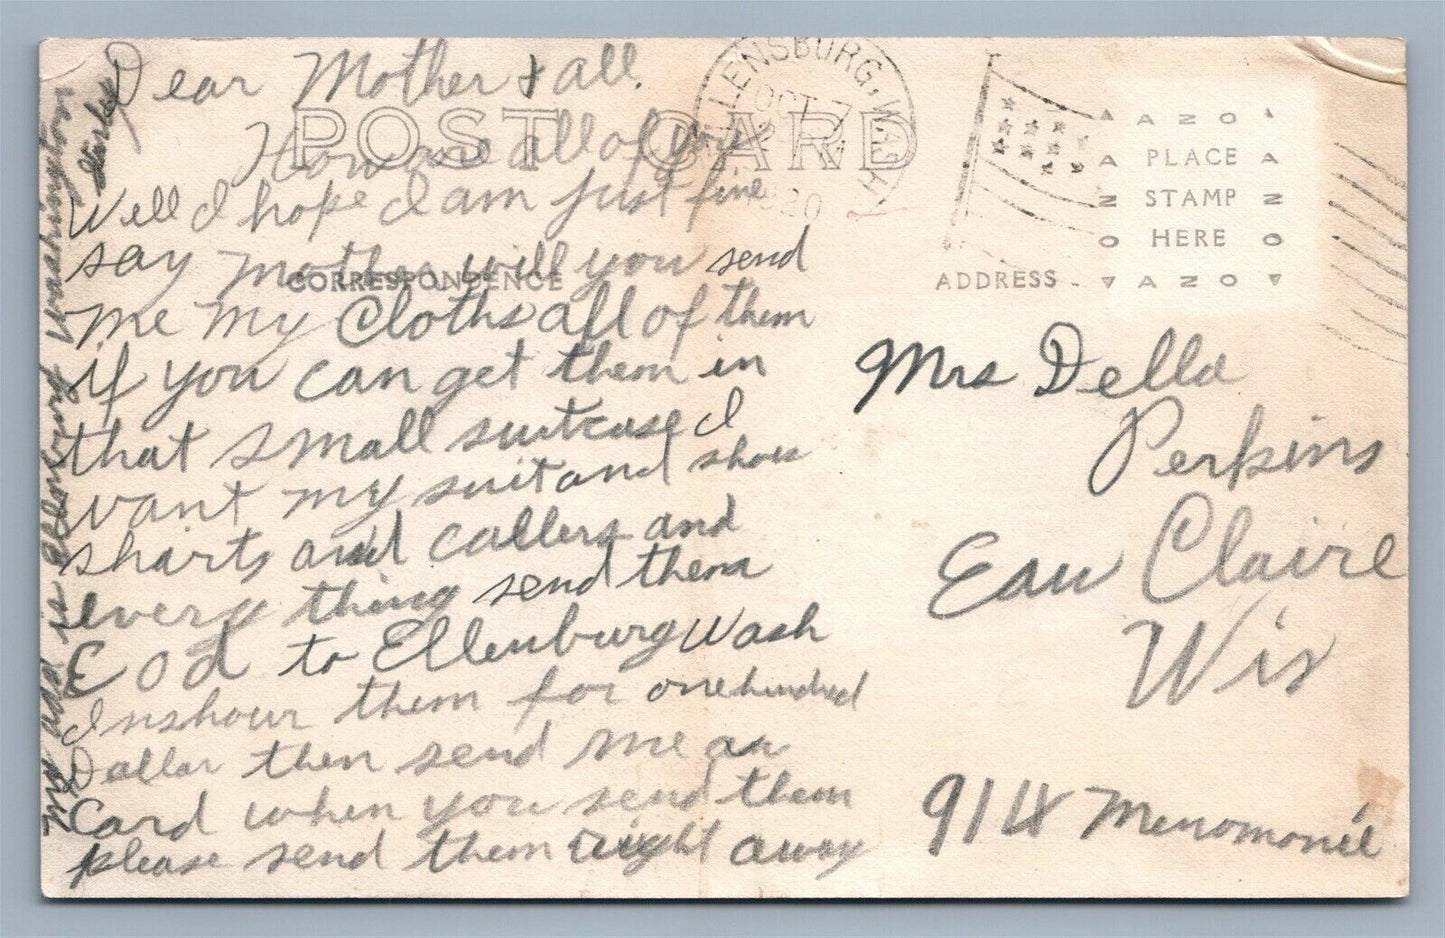 Dear Mother & all.
POST CARD
How are all of you
Well I hope I am just fine
say Mother will you send
CORRESPONDENCE
me my Cloths all of them
if you can get them in
that small suitcase I
want my suit and shoes
sharts and callers and
every thing send them
C o d to Ellenburg Wash
Inshour them for one hundred
Dollar then send me a
Card when you send them
please send them right away
My add is Ellenburg Washington
LENSBURG, WASH
OCT 7
AZNO
PLACE
STAMP
HERE
AZNO
ADDRESS
Mrs Della
Perkins
Eau Claire
Wis
914 Menomonie